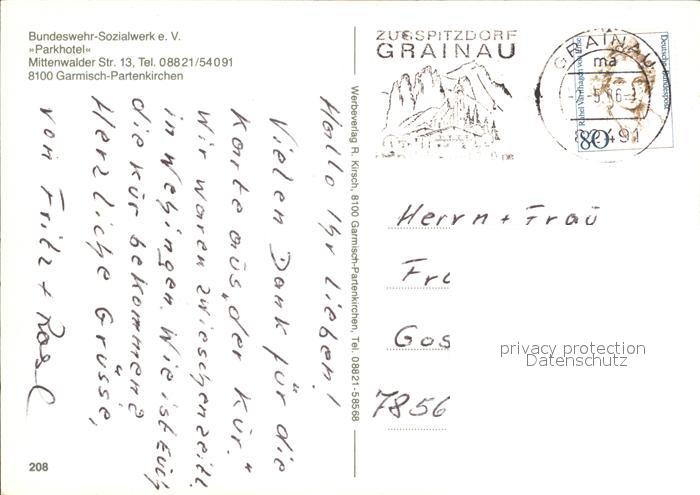 Bundeswehr-Sozialwerk e. V.
»Parkhotel«
Mittenwalder Str. 13, Tel. 08821/54091
8100 Garmisch-Partenkirchen
Hallo Ihr Lieben!
Vielen Dank für die
Karte aus „der Kür."
Wir waren zwieschenzeitl.
in Wehingen. Wie ist Euch
die Kür bekommen?
Herzliche Grüsse,
von Fritz + Rosl
208
Werbeverlag R. Kirsch, 8100 Garmisch-Partenkirchen, Tel. 08821-58568
ZUGSPITZDORF
GRAINAU
GRAINAU
ma
8104 91
Deutsche Bundespost
Rahel Varnhagen von Ense
80
Herrn + Frau
Fr
Gos
7856
privacy protection
Datenschutz